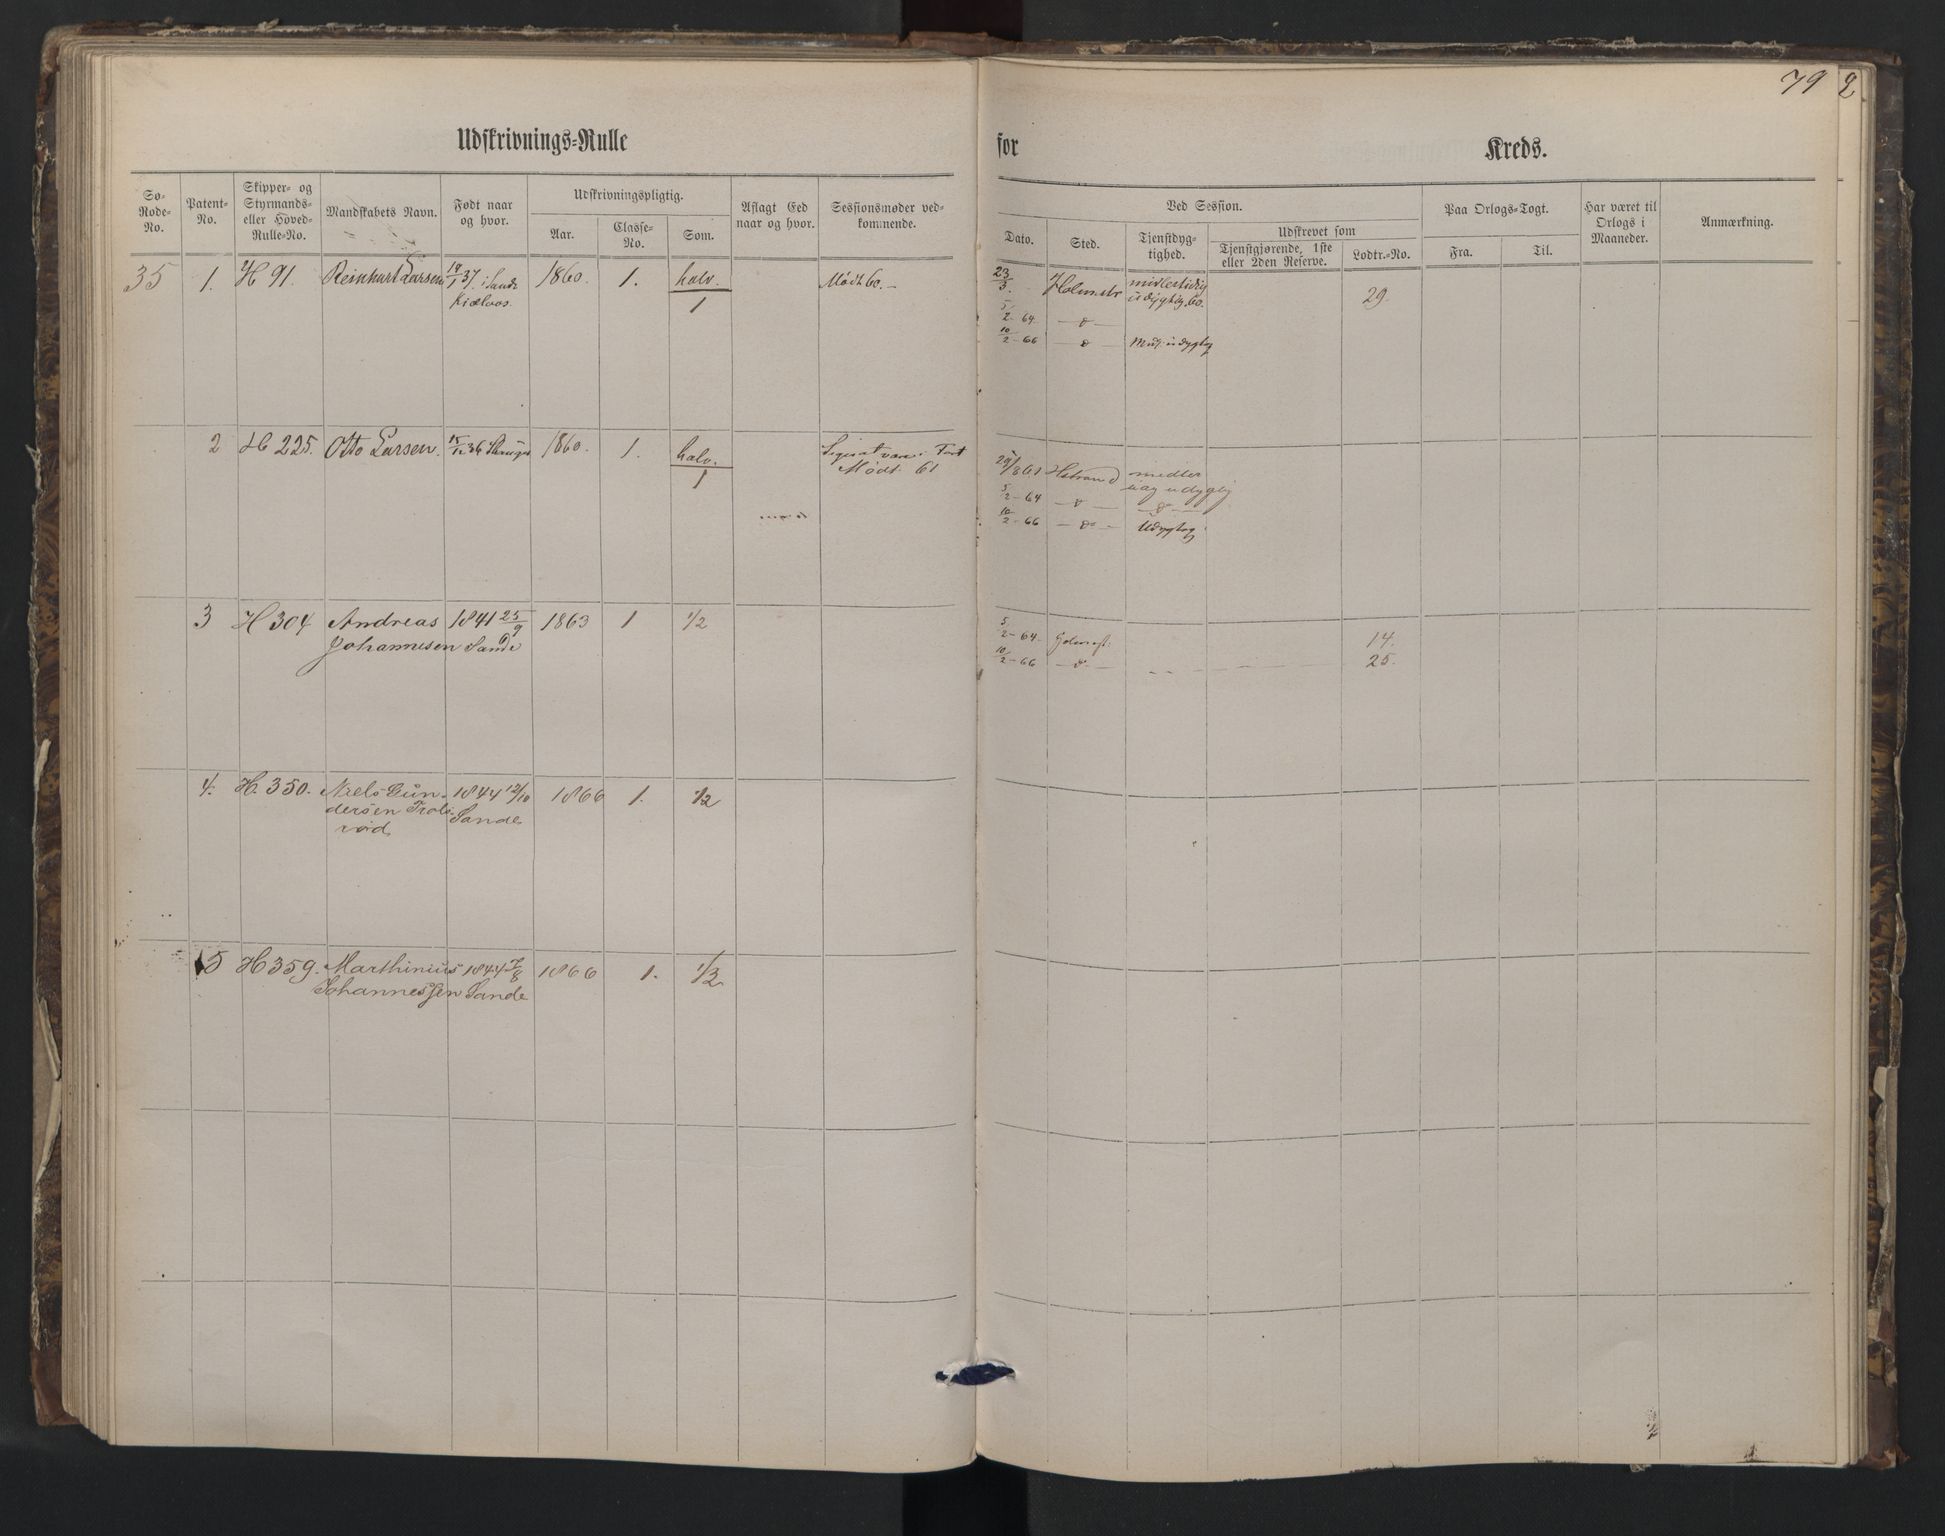 79
2
Udskrivnings-Rulle
for
Kreds.
Sø-Rode-No.
Patent-No.
Skipper- og Styrmands- eller Hoved-Rulle-No.
Mandskabets Navn.
Født naar og hvor.
Udskrivningspligtig.
Aar.
Classe-No.
Som.
Aflagt Eed naar og hvor.
Sessionsmøder vedkommende.
Ved Session.
Dato.
Sted.
Tjenstdygtighed.
Udskrevet som
Tjenstgjørende, 1ste eller 2den Reserve.
Lodtr.-No.
Paa Orlogs-Togt.
Fra.
Til.
Har været til Orlogs i Maaneder.
Anmærkning.
35 1. H 91. Reinhart Larsen 19/1 37. i Sande 1860. 1. halv. Mødt 60. 23/5 Holmstr midlertidig
1 udygtig 60. 29.
5/2-64 -d-
10/2-66 -d- Mid. udygtig
2 H 225. Otto Larsen. 15/12 36 1860. 1. halv.
1 Mødt 61 Hstrand
5/2-64 -d- -d-
10/2-66 -d- Udygtig
3 H 304 Andreas 1841 25/9 1863 1 1/2 5/2-64 14.
Johannesen Sande 10/2-66 -d- 25.
4. H. 350. Niels Gun- 1844 12/10 1866 1. 1/2
dersen Trols- Sande
rød
5 H 359. Marthinius 1844 7/8 1866 1. 1/2
Johannessen Sande